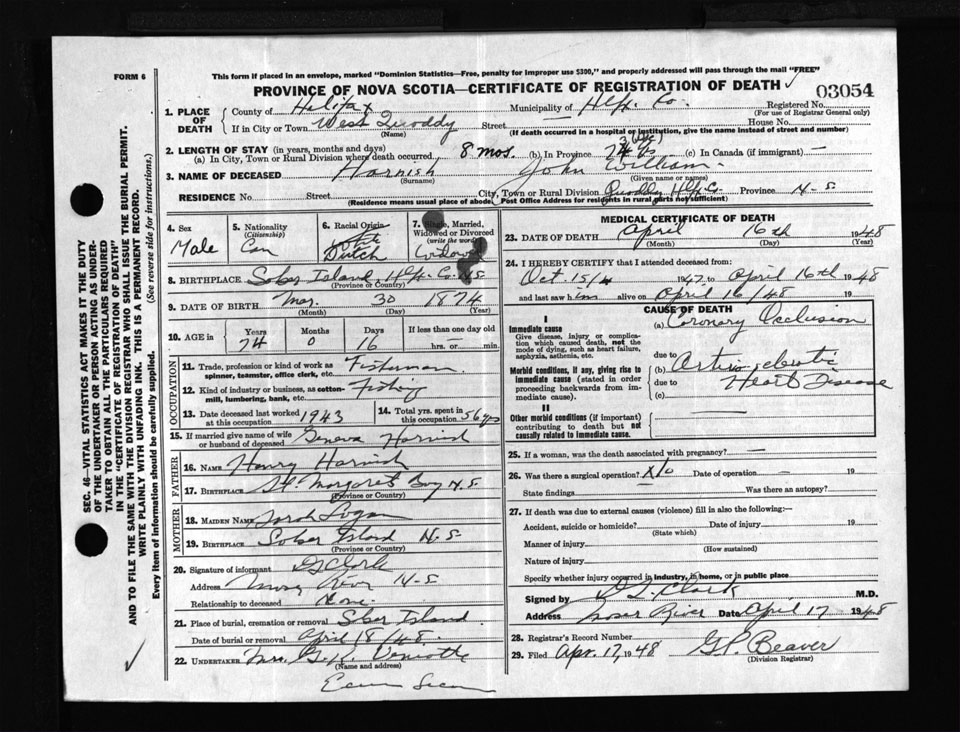 FORM 6
This form if placed in an envelope, marked "Dominion Statistics—Free, penalty for improper use $300," and properly addressed will pass through the mail "FREE"
PROVINCE OF NOVA SCOTIA—CERTIFICATE OF REGISTRATION OF DEATH
03054
1. PLACE OF DEATH
County of Halifax Municipality of Hfx. Co. Registered No.
(For use of Registrar General only)
If in City or Town West Quoddy Street House No.
(Name) (If death occurred in a hospital or institution, give the name instead of street and number)
2. LENGTH OF STAY (in years, months and days)
(a) In City, Town or Rural Division where death occurred. 8 mos. (b) In Province 74 yrs (c) In Canada (if immigrant) —
3. NAME OF DECEASED Harnish John William
(Surname) (Given name or names)
RESIDENCE No. Street City, Town or Rural Division Quoddy Hfx. Co. Province N-S
(Residence means usual place of abode. Post Office Address for residents in rural parts not sufficient)
4. Sex Male
5. Nationality (Citizenship) Can
6. Racial Origin White Dutch
7. Single, Married, Widowed or Divorced (write the word) Widowed
8. BIRTHPLACE Sober Island Hfx. Co. N.S
(Province or Country)
9. DATE OF BIRTH Mar. 30 1874
(Month) (Day) (Year)
10. AGE Years Months Days If less than one day old
74 0 16 hrs. — min.
OCCUPATION
11. Trade, profession or kind of work as spinner, teamster, office clerk, etc. Fisherman
12. Kind of industry or business, as cotton-mill, lumbering, bank, etc. Fishing
13. Date deceased last worked at this occupation 1943
14. Total yrs. spent in this occupation 56 yrs
15. If married give name of wife or husband of deceased Geneva Harnish
FATHER
16. NAME Henry Harnish
17. BIRTHPLACE St. Margaret Bay N.S
(Province or Country)
MOTHER
18. MAIDEN NAME Sarah Logan
19. BIRTHPLACE Sober Island N-S
(Province or Country)
20. Signature of informant Clark
Address River N-S
Relationship to deceased None
21. Place of burial, cremation or removal Sober Island
Date of burial or removal April 18/48
22. UNDERTAKER Mrs. G.K.
(Name and address)
MEDICAL CERTIFICATE OF DEATH
23. DATE OF DEATH April 16th 1948
(Month) (Day) (Year)
24. I HEREBY CERTIFY that I attended deceased from:
Oct 15/4 1947 to April 16th 1948
and last saw him alive on April 16/48 19
CAUSE OF DEATH
I
Immediate cause
Give disease, injury or complication which caused death, not the mode of dying, such as heart failure, asphyxia, asthenia, etc.
(a) Coronary Occlusion
due to
Morbid conditions, if any, giving rise to immediate cause (stated in order proceeding backwards from immediate cause).
(b) Arteriosclerotic
due to Heart Disease
(c)
II
Other morbid conditions (if important) contributing to death but not causally related to immediate cause.
25. If a woman, was the death associated with pregnancy? —
26. Was there a surgical operation? No Date of operation — 19
State findings Was there an autopsy?
27. If death was due to external causes (violence) fill in also the following:—
Accident, suicide or homicide? Date of injury 19
(State which)
Manner of injury
(How sustained)
Nature of injury
Specify whether injury occurred in industry, in home, or in public place
Signed by Clark M.D.
Address River Date April 17 1948
28. Registrar's Record Number
29. Filed Apr. 17, 1948 G.P. Beaver
(Division Registrar)
SEC. 46—VITAL STATISTICS ACT MAKES IT THE DUTY
OF THE UNDERTAKER OR PERSON ACTING AS UNDER-
TAKER TO OBTAIN ALL THE PARTICULARS REQUIRED
IN THE "CERTIFICATE OF REGISTRATION OF DEATH"
AND TO FILE THE SAME WITH THE DIVISION REGISTRAR WHO SHALL ISSUE THE BURIAL PERMIT.
WRITE PLAINLY WITH UNFADING INK. THIS IS A PERMANENT RECORD.
Every item of information should be carefully supplied. (See reverse side for instructions.)